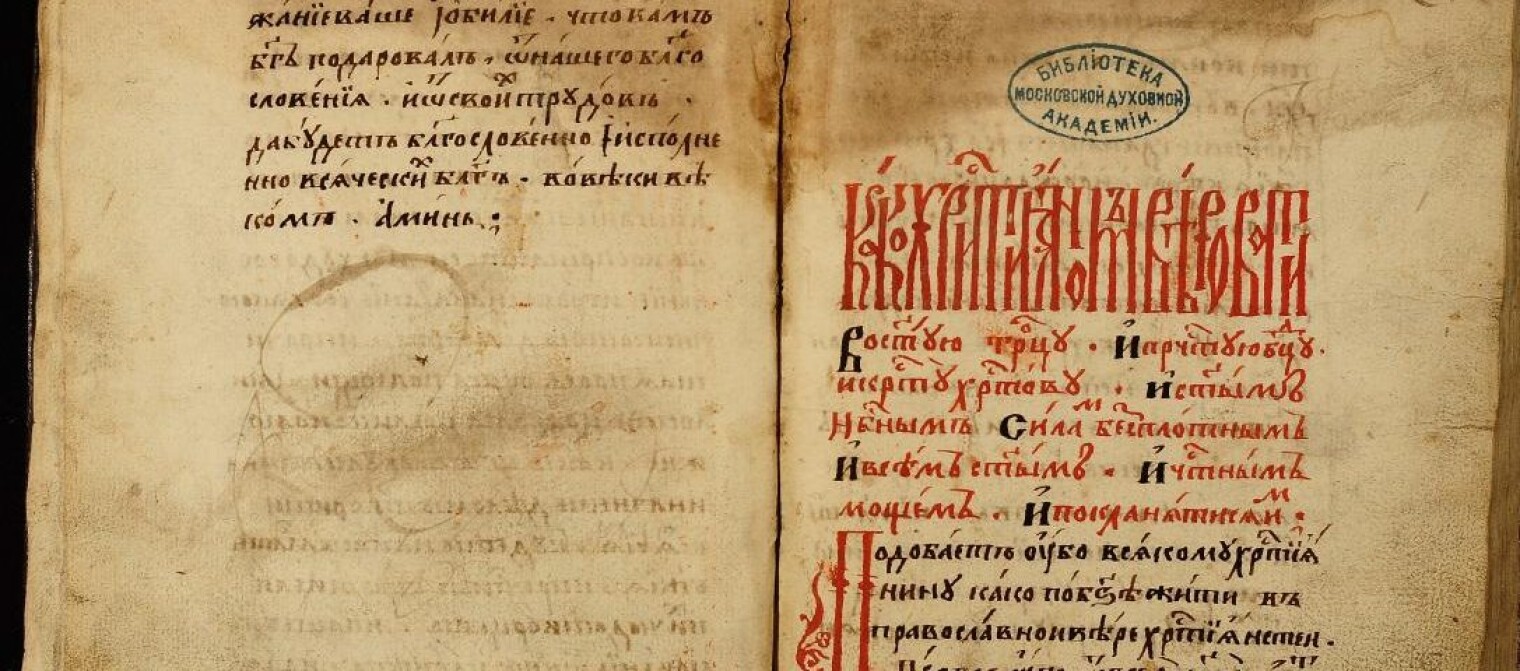 жа́нїе ва́ше ізоби́лїе . что ва́мъ
бг҃ъ подарова́лъ . ѿ на́шего бл҃го
слове́нїѧ . и ѿ свои́хъ трꙋдо́въ .
да бꙋ́детъ бл҃гослове́нно і испо́лне
нно всѧ́чески́хъ бл҃гъ . во вѣ́ки вѣ
ко́мъ . а҆ми́нь ;
БИБЛІОТЕКА
МОСКОВСКОЙ ДУХОВНОЙ
АКАДЕМІИ.
Во ст҃ꙋю трⷪ҇цꙋ . И прч҃тꙋю бцⷣꙋ .
и крⷭ҇тꙋ хрⷭ҇то́вꙋ . и ст҃ы́мъ
Нб҃нымъ Си́ламъ беспло́тнымъ
И всѣ́мъ ст҃ы́мъ . И чⷭ҇тны́мъ
моще́мъ . И покланѧ́тисѧ и́мъ .
Подоба́етъ ᲂу҆́бо всѧ́комꙋ хрⷭ҇тїѧ́
нинꙋ ка́ко по бз҃ѣ жи́ти въ
правосла́вной вѣ́ре хрⷭ҇тїѧ́нстей .